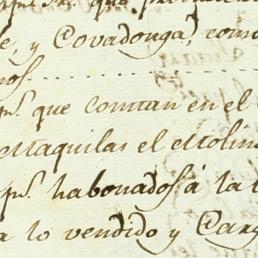 que
y Covadonga, com
nos
ps. que constan en el
Maquilas el Molin
ps. habonados á la
a lo vendido y Carg